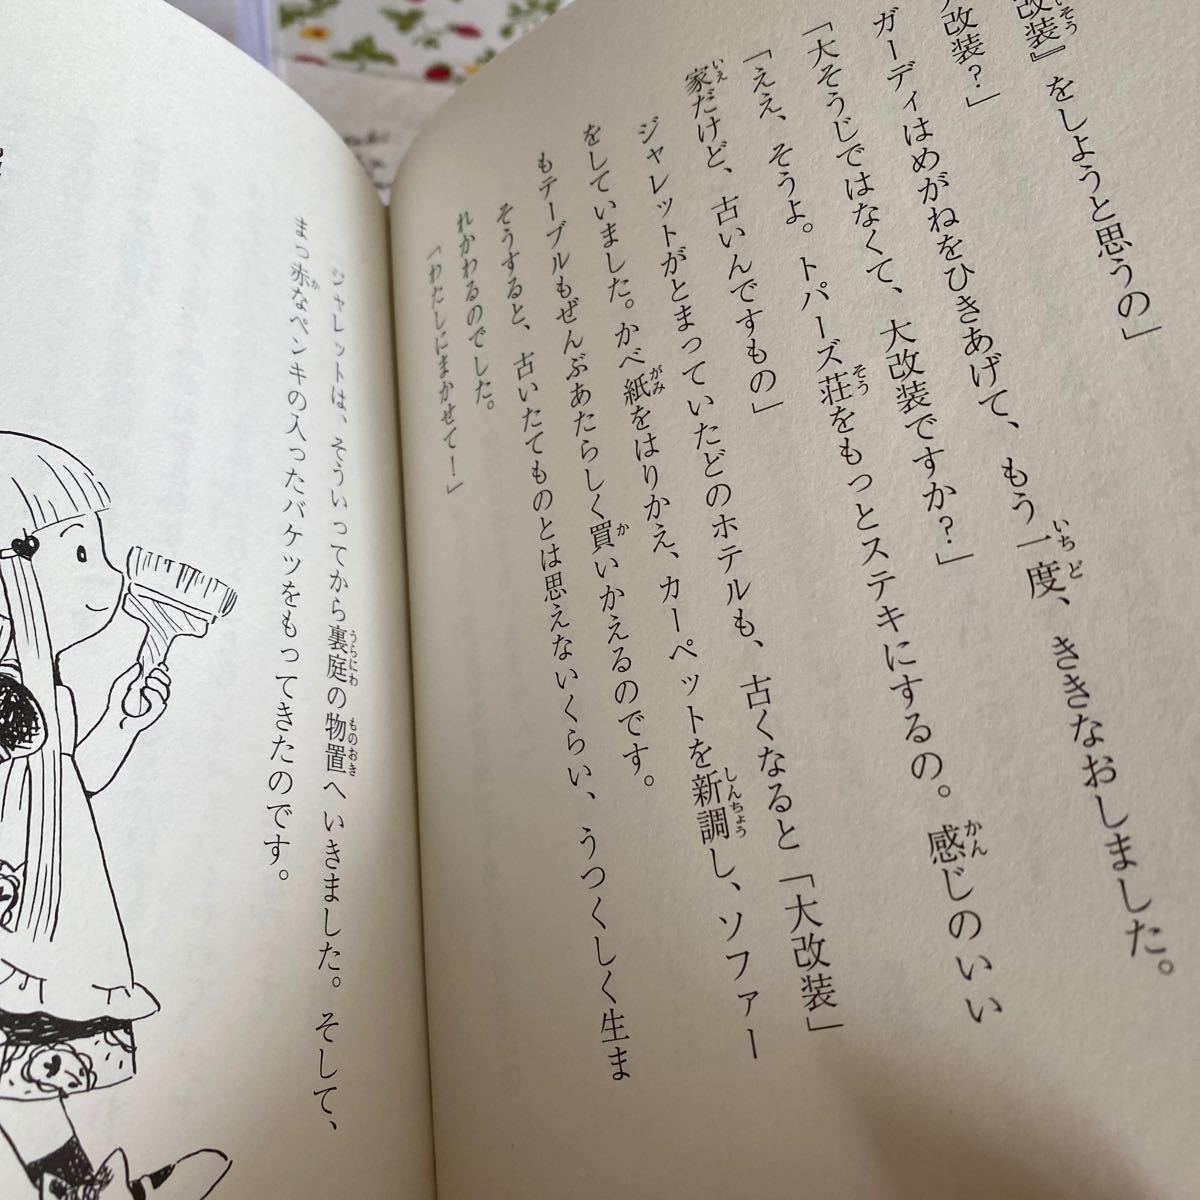 改装』をしようと思うの」
改装？」
ガーディはめがねをひきあげて、もう一度、ききなおしました。
「大そうじではなくて、大改装ですか？」
「ええ、そうよ。トパーズ荘をもっとステキにするの。感じのいい
家だけど、古いんですもの」
ジャレットがとまっていたどのホテルも、古くなると「大改装」
をしていました。かべ紙をはりかえ、カーペットを新調し、ソファー
もテーブルもぜんぶあたらしく買いかえるのです。
そうすると、古いたてものとは思えないくらい、うつくしく生ま
れかわるのでした。
「わたしにまかせて！」
ジャレットは、そういってから裏庭の物置へいきました。そして、
まっ赤なペンキの入ったバケツをもってきたのです。